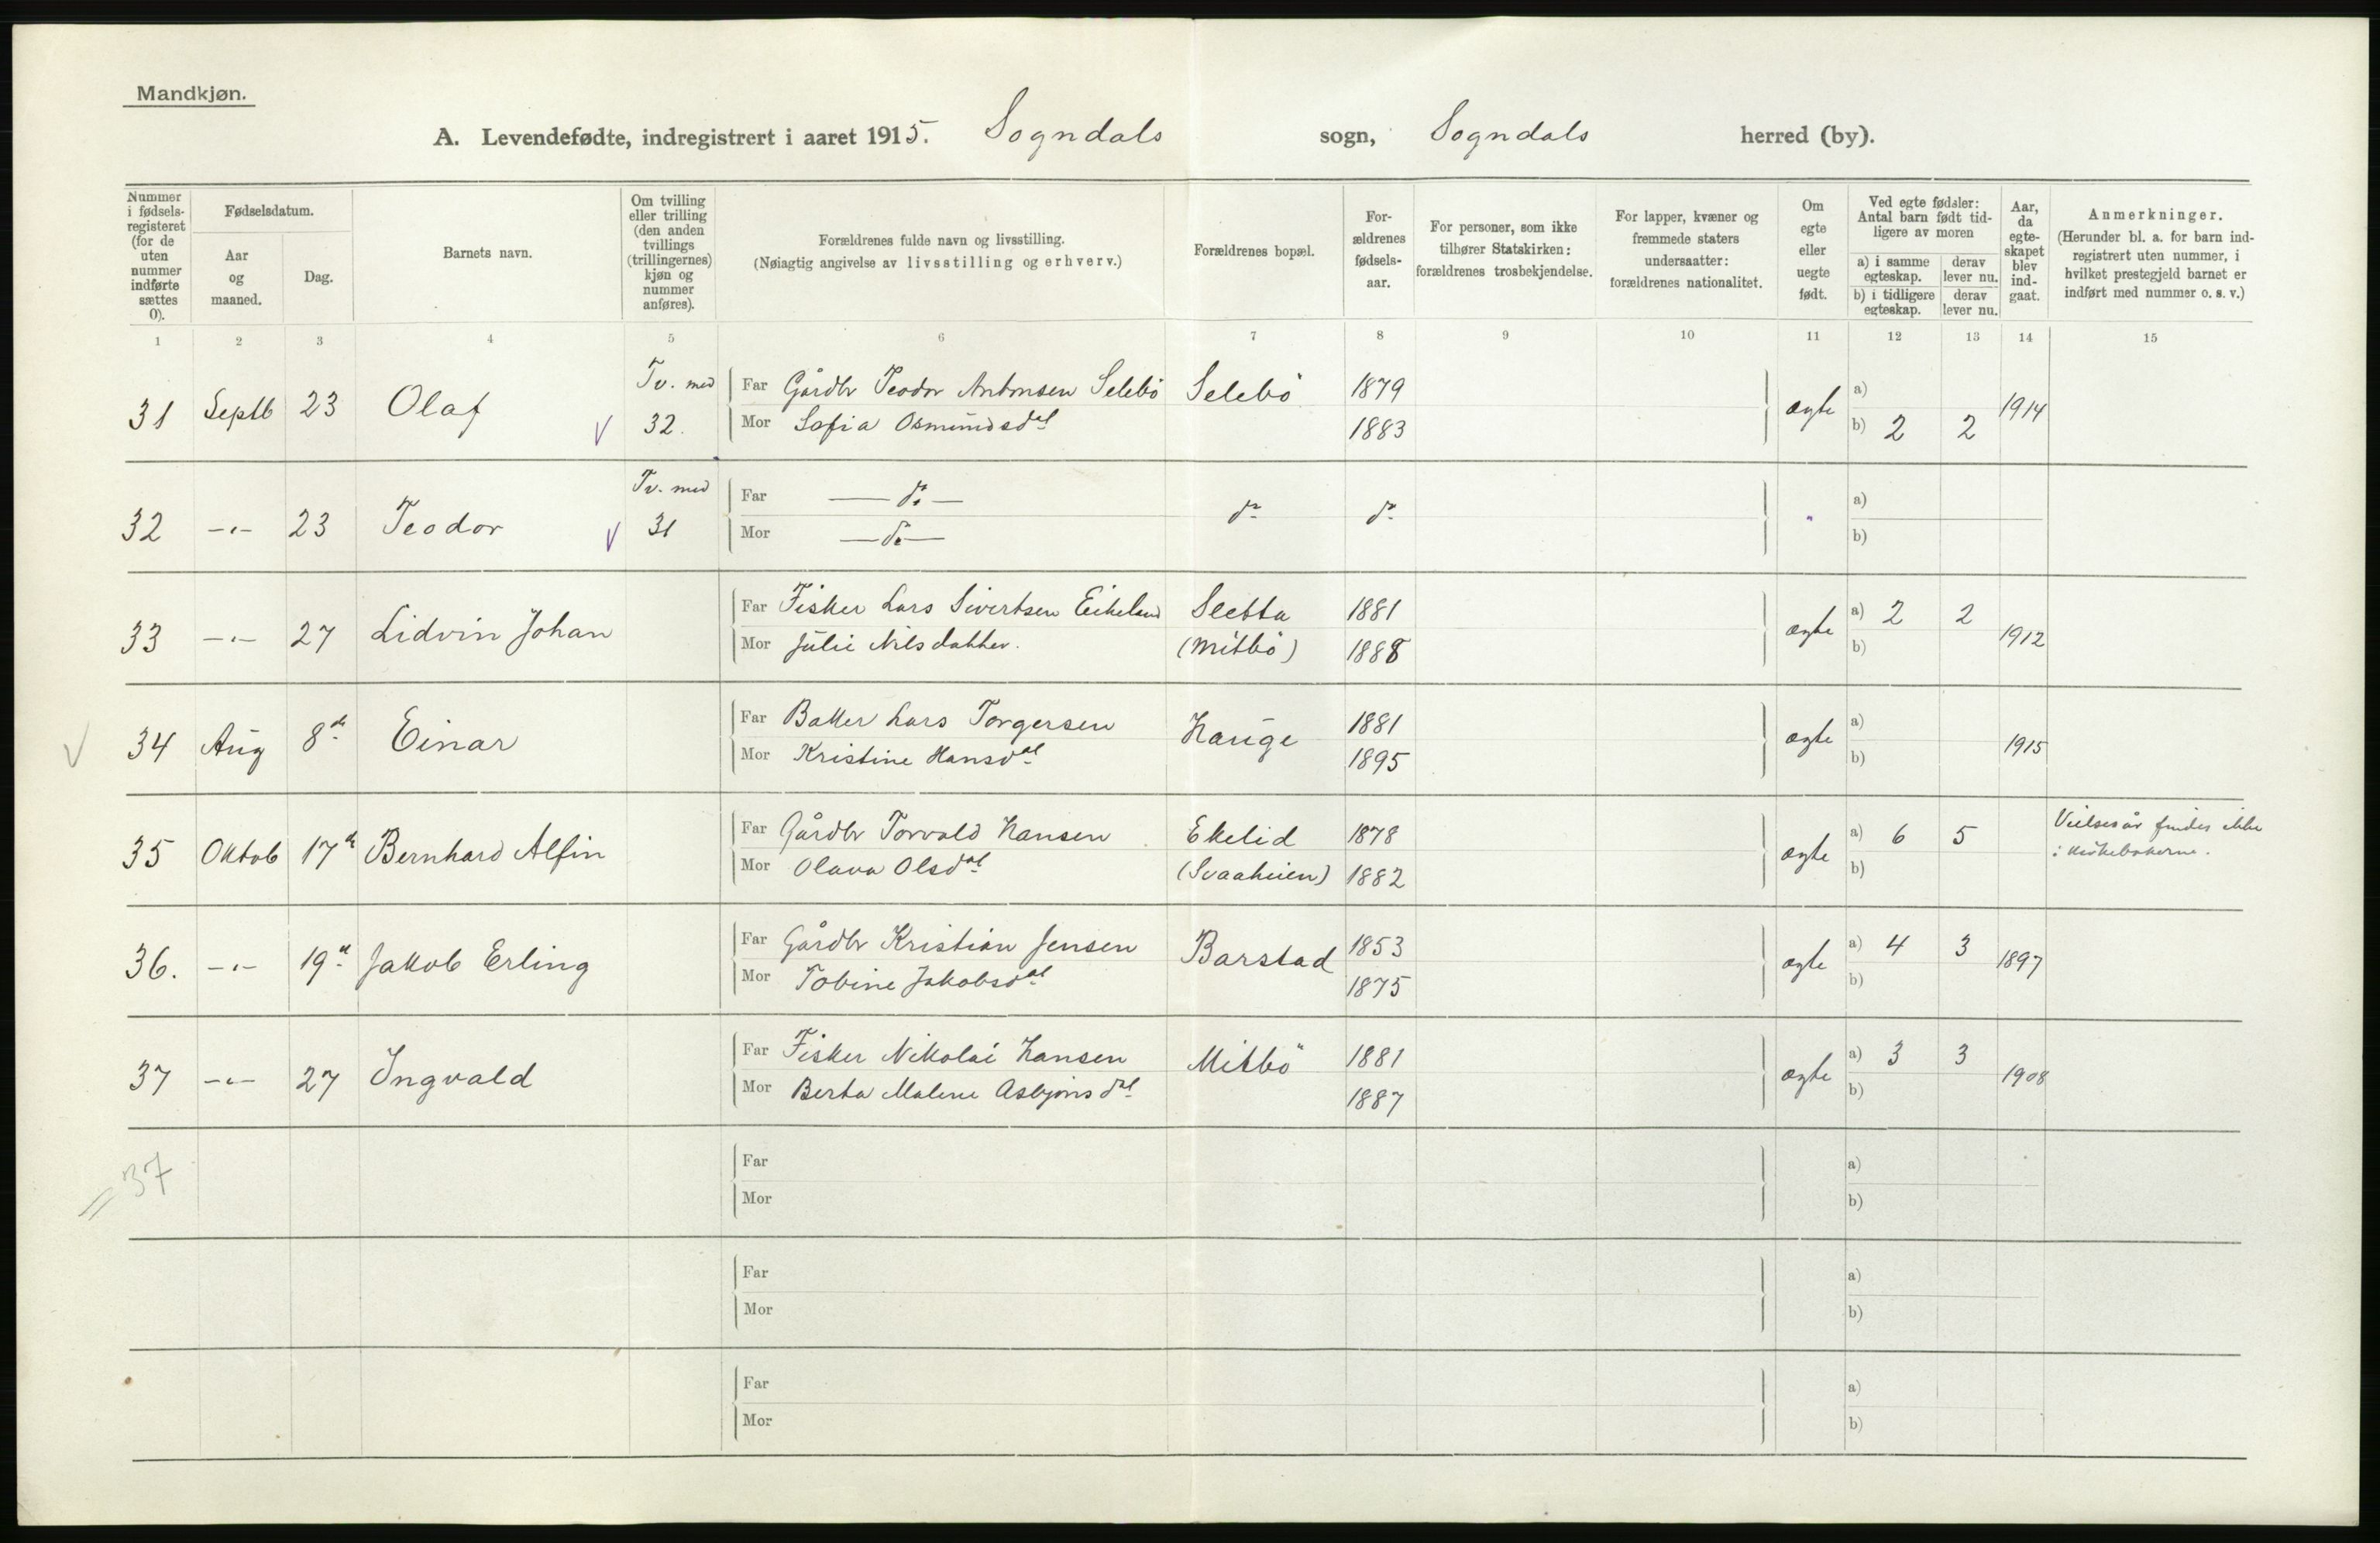 Mandkjøn.
A. Levendefødte, indregistrert i aaret 1915. Sogndals sogn, Sogndals herred (by).
Nummer i fødsels-registeret (for de uten nummer indførte sættes 0).
Fødselsdatum.
Aar og maaned.
Dag.
Barnets navn.
Om tvilling eller trilling (den anden tvillings (trillingernes) kjøn og nummer anføres).
Forældrenes fulde navn og livsstilling.
(Nøiagtig angivelse av livsstilling og erhverv.)
Forældrenes bopæl.
For-ældrenes fødsels-aar.
For personer, som ikke tilhører Statskirken: forældrenes trosbekjendelse.
For lapper, kvæner og fremmede staters undersaatter: forældrenes nationalitet.
Om egte eller uegte født.
Ved egte fødsler: Antal barn født tid-ligere av moren
a) i samme egteskap. derav lever nu.
b) i tidligere egteskap. derav lever nu.
Aar, da egte-skapet blev ind-gaat.
Anmerkninger.
(Herunder bl. a. for barn ind-registrert uten nummer, i hvilket prestegjeld barnet er indført med nummer o. s. v.)
1 2 3 4 5 6 7 8 9 10 11 12 13 14 15
31 Septb 23 Olaf Tv. med 32. Far Gårdbr Teodor Antonsen Selebö Selebö 1879 ægte a) 1914
Mor Sofia Osmundsdat 1883 b) 2 2
32 -"- 23 Teodor Tv. med 31 Far — do — do do " a)
Mor — do — b)
33 -"- 27 Lidvin Johan Far Fisker Lars Sivertsen Eikeland Sletta 1881 ægte a) 2 2 1912
Mor Julie Nilsdatter. (Mitbö) 1888 b)
34 Aug 8de Einar Far Baker Lars Torgersen Hauge 1881 ægte a) 1915
Mor Kristine Hansdat 1895 b)
35 Oktob 17de Bernhard Alfin Far Gårdbr Torvald Hansen Ekelid 1878 ægte a) 6 5 Vielsesår findes ikke
Mor Olava Olsdat (Svaaheien) 1882 b) i kirkebøkerne.
36. -"- 19de Jakob Erling Far Gårdbr Kristian Jensen Barstad 1853 ægte a) 4 3 1897
Mor Tobine Jakobsdat 1875 b)
37 -"- 27 Ingvald Far Fisker Nikolai Hansen Mitbö 1881 ægte a) 3 3 1908
Mor Berta Malene Asbjönsdat 1887 b)
= 37
Far a)
Mor b)
Far a)
Mor b)
Far a)
Mor b)